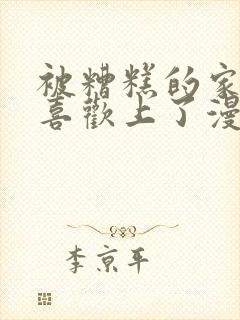 被糟糕的家
喜歡上了漫
李京平